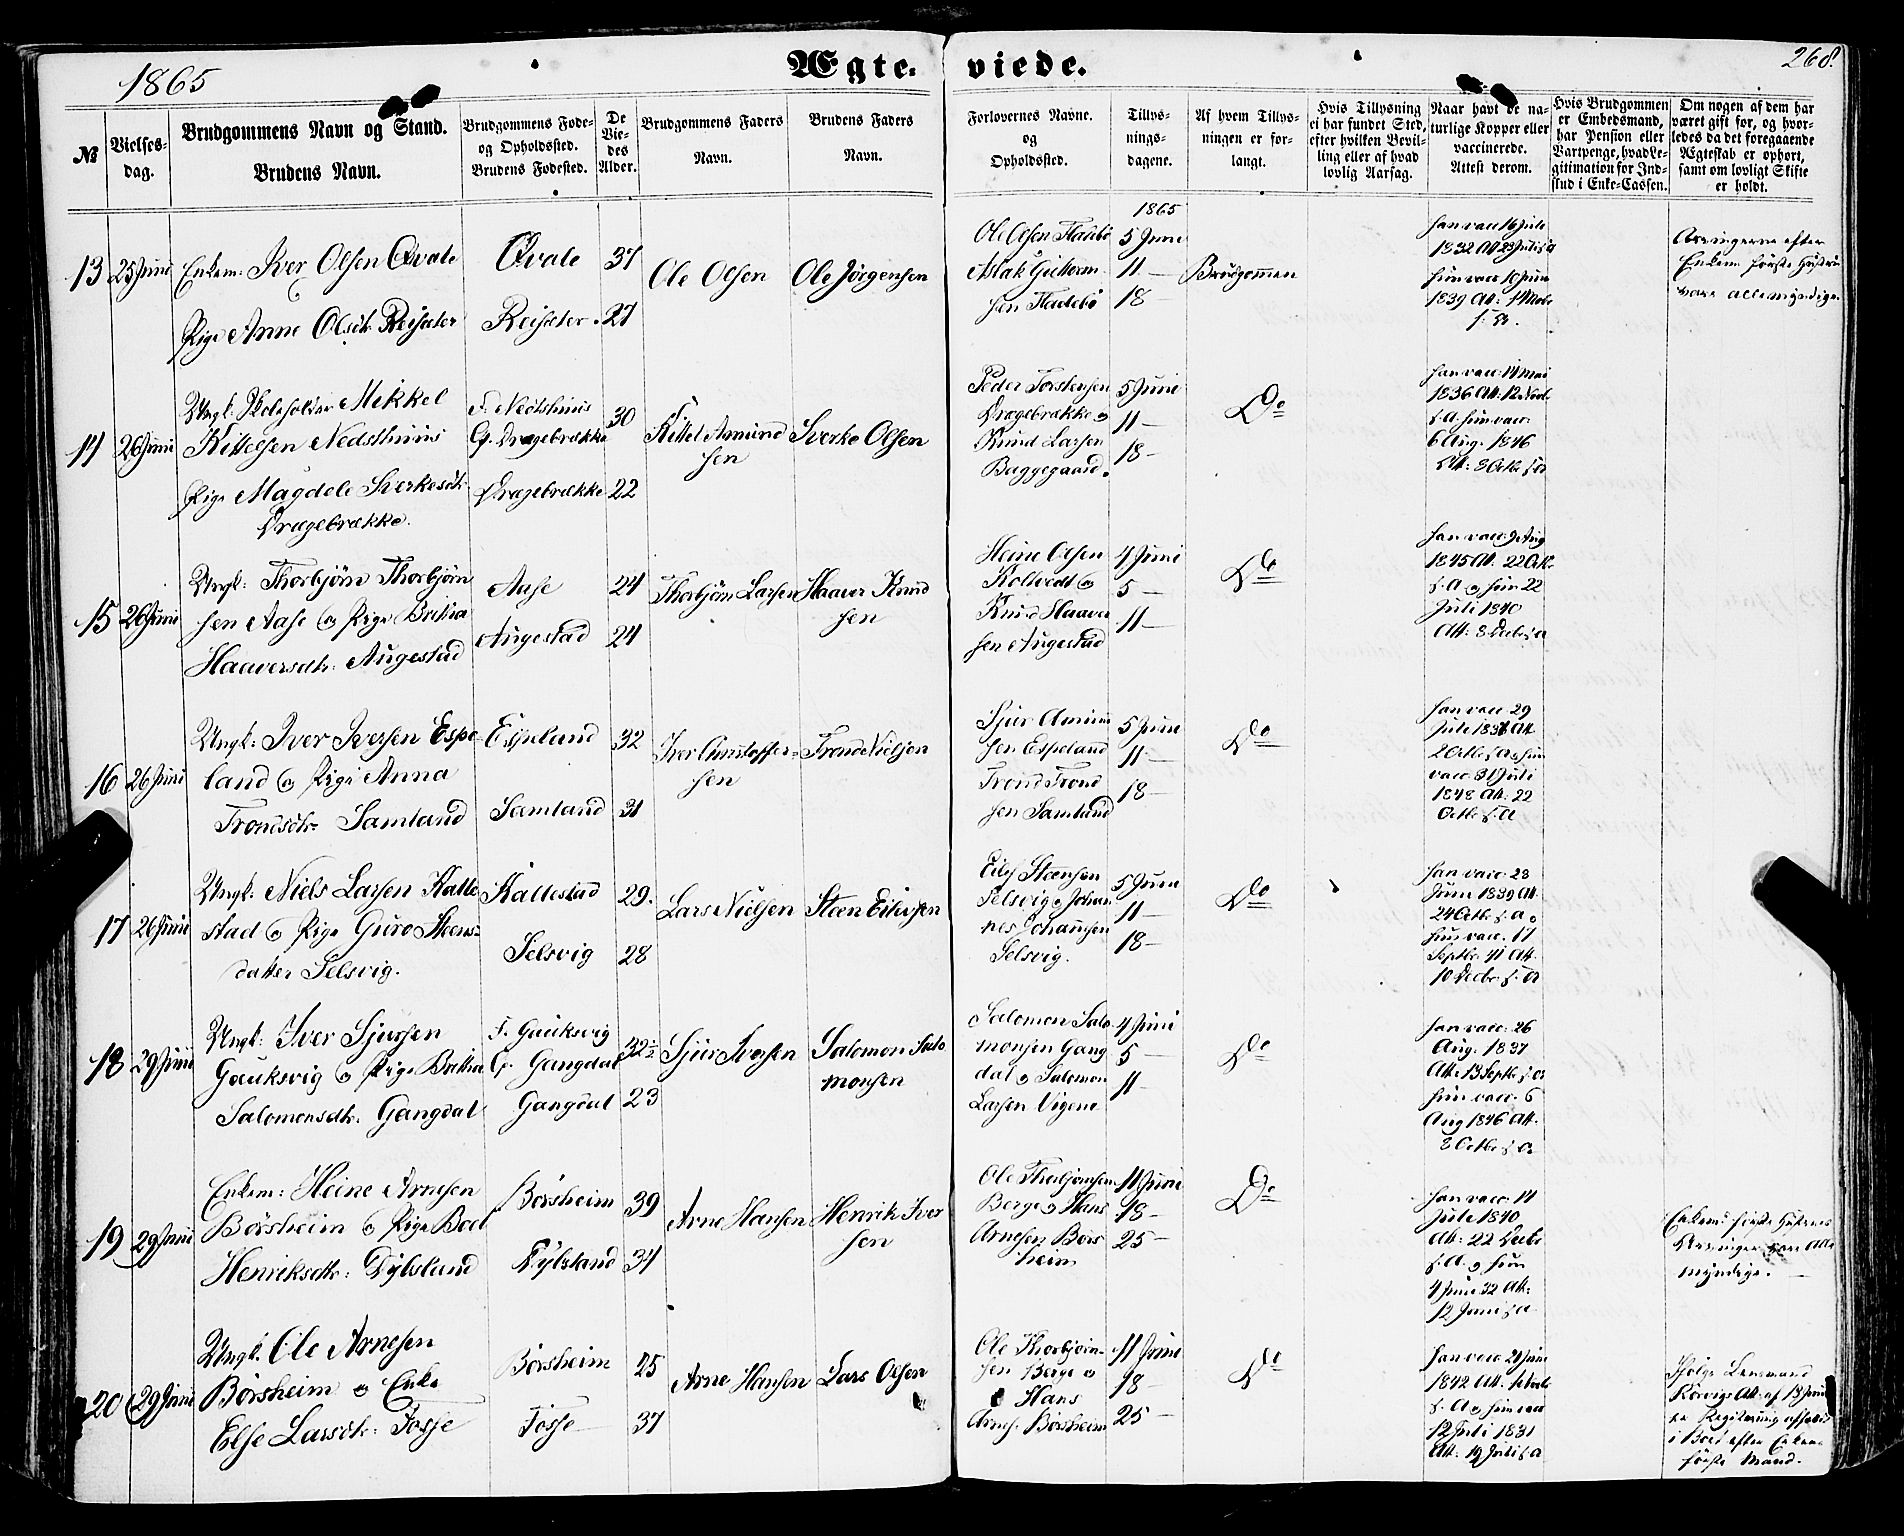 1865
Ægte-viede.
268.
№
Vielses-
dag.
Brudgommens Navn og Stand.
Brudens Navn.
Brudgommens Føde-
og Opholdssted.
Brudens Fødested.
De
Vie-
des
Alder.
Brudgommens Faders
Navn.
Brudens Faders
Navn.
Forlovernes Navne.
og
Opholdssted.
Tillys-
nings-
dagene.
Af hvem Tillys-
ningen er for-
langt.
Hvis Tillysning
ei har fundet Sted,
efter hvilken Bevil-
ling eller af hvad
lovlig Aarsag.
Naar havt de na-
turlige Kopper eller
vaccinerede.
Attest derom.
Hvis Brudgommen
er Embedsmand,
har Pension eller
Vartpenge, hvad Le-
gitimation for Ind-
skud i Enke-Cassen.
Om nogen af dem har
været gift før, og hvor-
ledes da det foregaaende
Ægteskab er ophørt,
samt om lovligt Skifte
er holdt.
13
25 Juni
Enkem: Iver Olsen Qvale
Pige Anne Olsdtr. Reisæter
Qvale
Reisæter.
37
27
Ole Olsen
Ole Jørgensen
Ole Olsen
Aslak
1865
5 Juni
11 —
18 —
Brudgommen
han vacc 16 Juli
1832 Att 29 Juli s a
hun vacc 10 Juni
1839 Att:
Arvingerne efter
Enkem. første Hustru
vare alle myndige
14
26 Juni
Ungk: Skoleholder Mikkel
Kittelsen Nedsthuus
Pige Magdele Sverkesdtr.
Drægebrække.
F. Nedsthuus
O. Drægebrække
Drægebrække
30
22
Kittel Amund
sen
Sverke Olsen
Peder Torstensen
Drægebrække o
Knud Larsen
Baggegaard.
5 Juni
11 —
18 —
Do
han vacc: 14 Mai
1836 Att: 12 Novb
s. A. hun vacc
6 Aug. 1846
Att: 8 Octb s a
15
26 Juni
Ungk: Thorbjørn Thorbjørn
sen Aase og Pige Brithe
Haaversdtr. Augestad
Aase
Augestad
24
24
Thorbjørn Larsen
Haaver Knud
sen
Heine Olsen
Koltvedt og
Knud Haaver
sen Augestad
4 Juni
5 —
11 —
Do
han vacc 9 Aug
1845 Att. 22 Octb.
s. A o hun 22
Juli 1840
Att: 8 Decb s a
16
26 Juni
Ungk: Iver Iversen Espe
land og Pige Anna
Trondsdtr. Samland
Espeland
Samland
32
31
Iver Christoffer-
sen
Trond Nielsen
Sjur Amund
sen Espeland
Trond Trond
sen Samland
5 Juni
11 —
18 —
Do
han vacc 29
2 Octb s. a hun
vacc 31 Juli
1848 Att: 22
Octb s. a
17
26 Juni
Ungk: Niels Larsen Kalle
stad og Pige Guro Steens-
datter Selsvig.
Kallestad
Selsvig
29.
28
Lars Nielsen
Steen Eilifsen
Eilif Steensen
Selsvig o Johan
nes Johannsen
Selsvig.
5 Juni
11 —
18 —
Do
han vacc. 28
Juni 1839 Att.
24 Octb. s. a o
hun vacc. 17
Septbr. 41 Att.
10 Decbr s. a
18
29 Juni
Ungk: Iver Sjursen
Gauksvig og Pige Brithe
Salomonsdtr. Gangdal
F. Gauksvig
O. Gangdal
Gangdal
32 ½
23
Sjur Iversen
Salomon Salo
monsen
Salomon Salo
monsen Gang
dal o Salomon
Larsen Vigene
4 Juni
5 —
11 —
Do
han vacc: 26
Aug. 1837
Att. 13 Septb s. a
hun vacc. 6
Aug 1846 Att.
8 Octb s. a
19
29 Juni
Enkem: Heine Arnesen
Børsheim og Pige Boel
Henriksdtr: Dybsland
Børsheim
Dybsland
39
34
Arne Hansen
Henrik Iver
sen
Ole Thorbjørnsen
Berge o Hans
Arnesen Børs
heim
11 Juni
18 —
25 —
Do
han vacc. 14
Juli 1840
Att: 22 Decb
s. A. o hun
4 Juni 32 Att:
12 Juni s a
Enkem: første Hustrues
Arvinger vare alle
myndige. —
20
29 Juni
Ungk. Ole Arnesen
Børsheim o Enke
Else Larsdtr. Tosje
Børsheim
Tosje
25
37
Arne Hansen
Lars Olsen
Ole Thorbjørn-
sen Berge o
Hans
Arnes. Børsheim
11 Juni
18 —
25 —
Do
han vacc. 21 Juni
1842 Att.
s. A o hun vacc
12 Juli 1831
Att: 19 Juli s a
Ifølge Lensmand
Att. af 13 Juni
i Boet efter Enkens
første Mand.